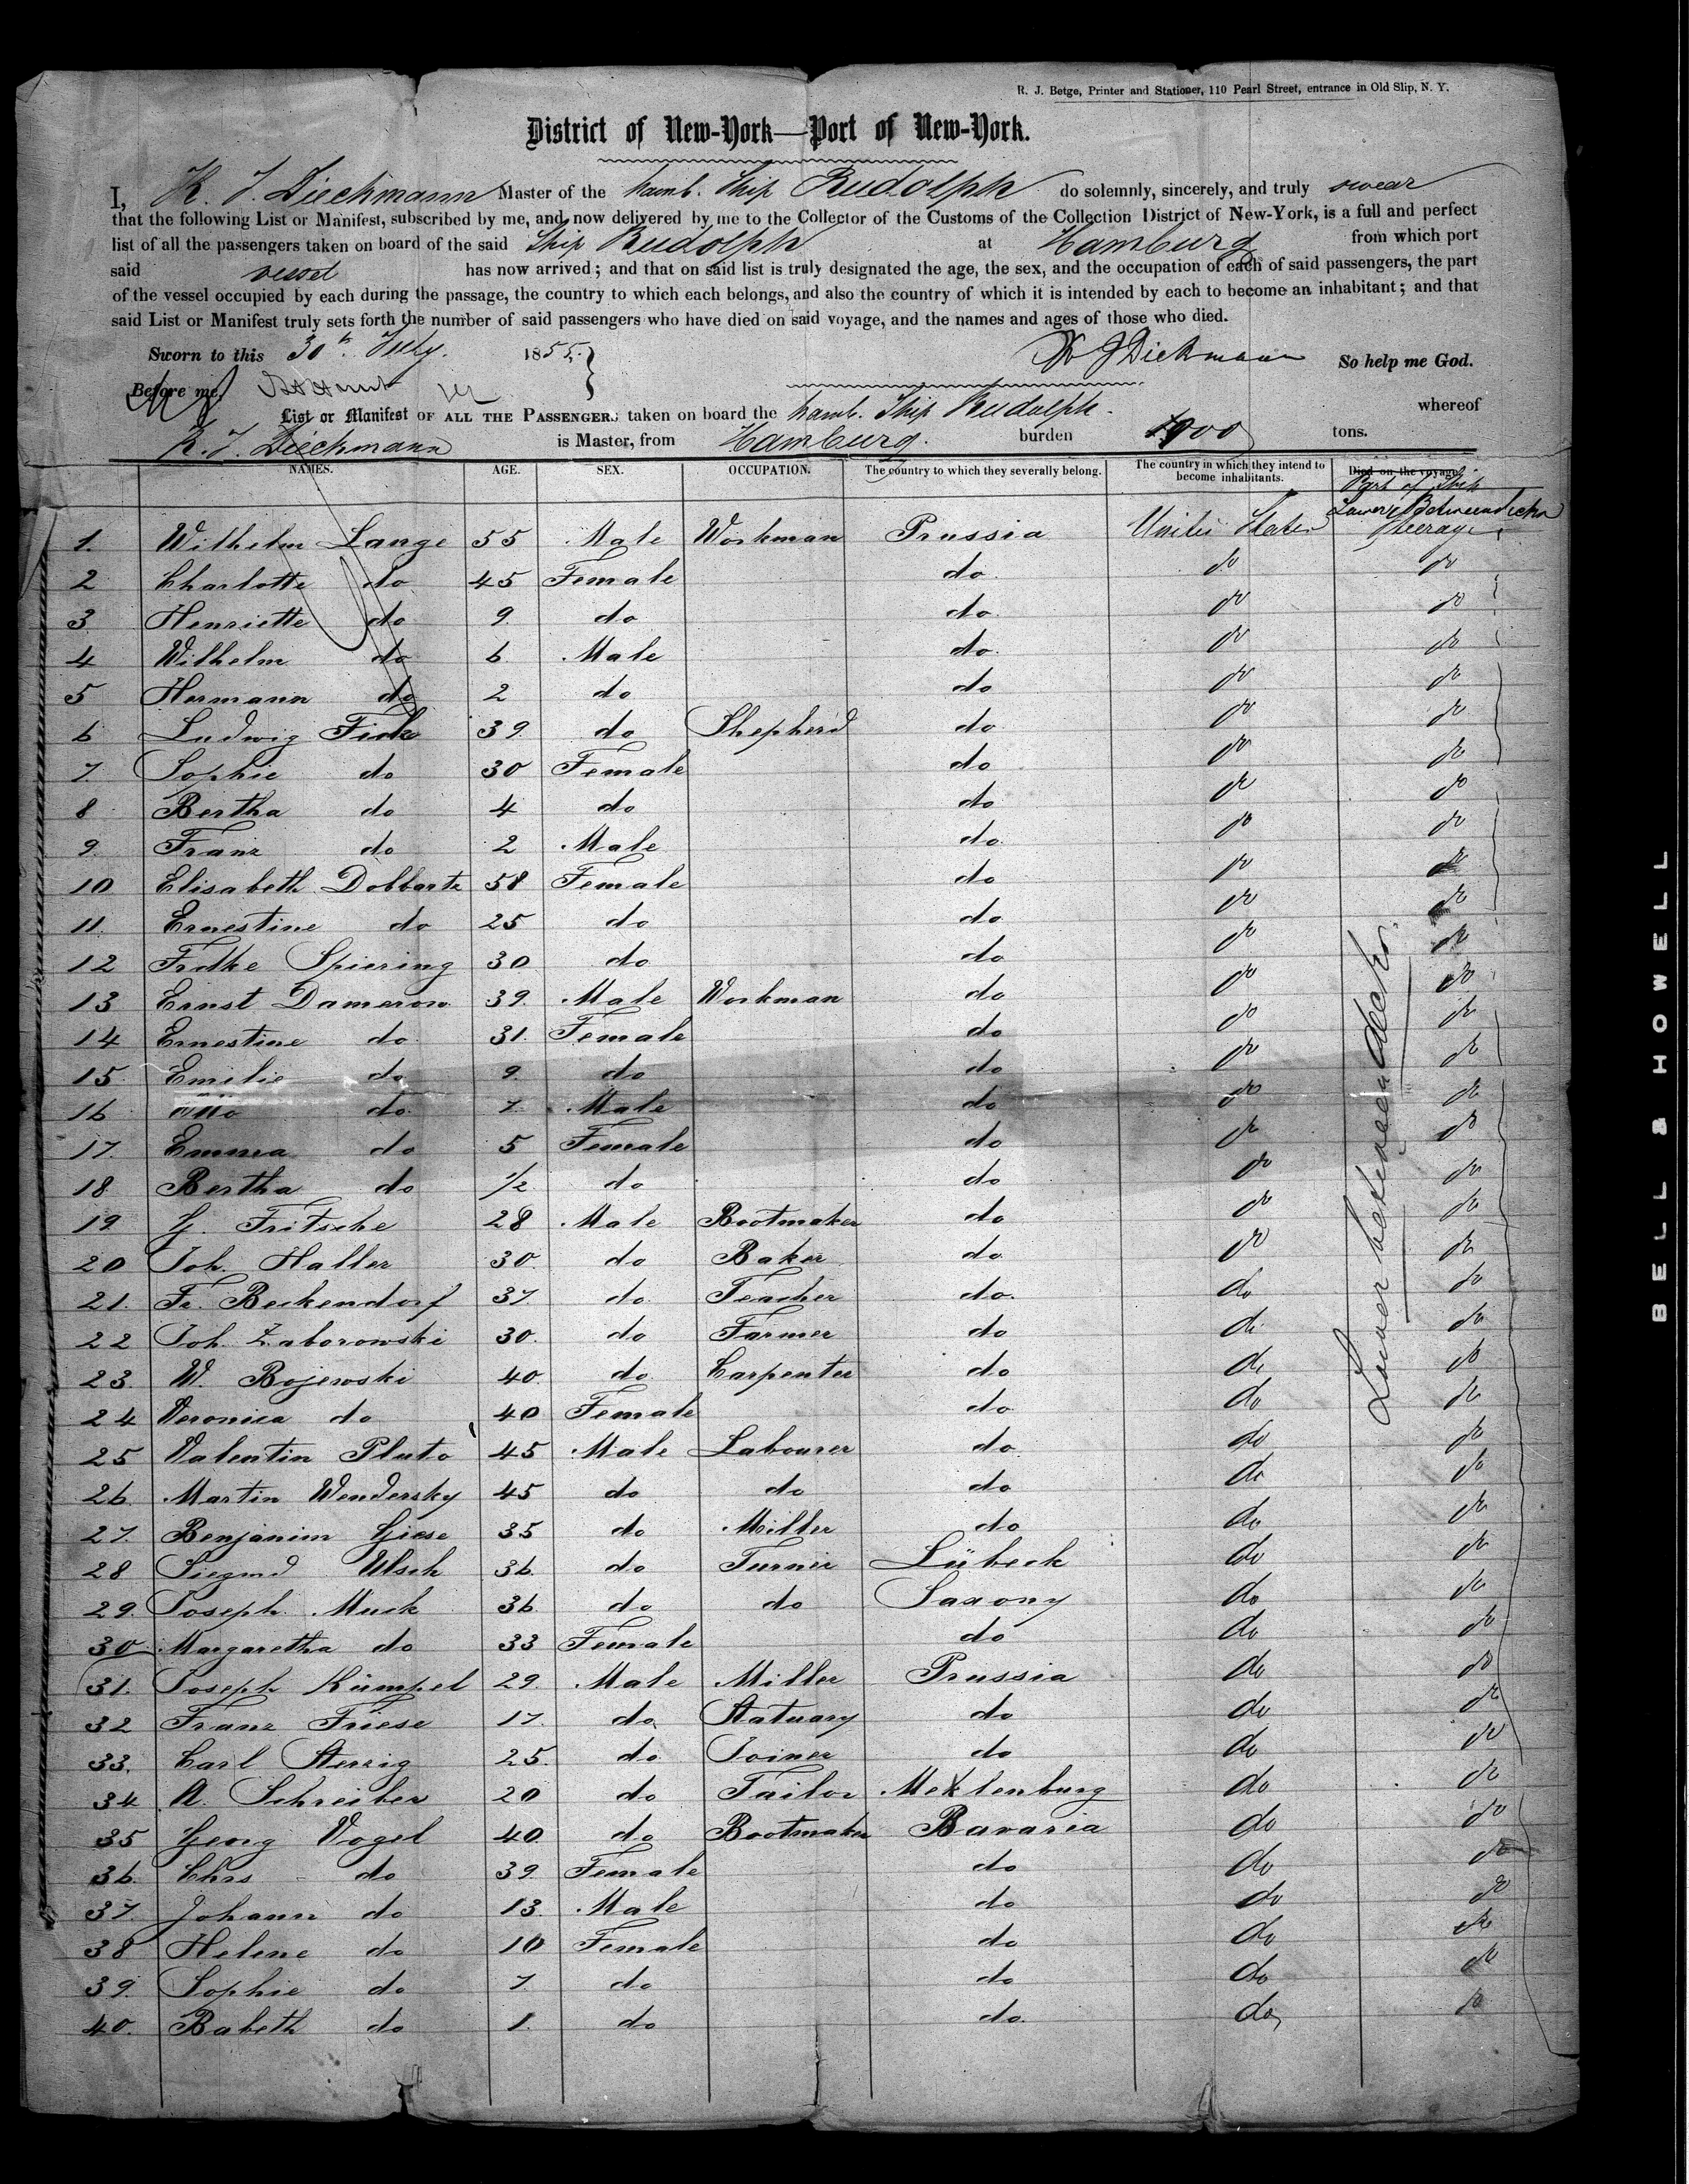 R. J. Betge, Printer and Stationer, 110 Pearl Street, entrance in Old Slip, N. Y.
District of New-York—Port of New-York.
I, H. J. Dieckmann Master of the hamb. Ship Rudolph do solemnly, sincerely, and truly swear
that the following List or Manifest, subscribed by me, and now delivered by me to the Collector of the Customs of the Collection District of New-York, is a full and perfect
list of all the passengers taken on board of the said Ship Rudolph at Hamburg from which port
said vessel has now arrived; and that on said list is truly designated the age, the sex, and the occupation of each of said passengers, the part
of the vessel occupied by each during the passage, the country to which each belongs, and also the country of which it is intended by each to become an inhabitant; and that
said List or Manifest truly sets forth the number of said passengers who have died on said voyage, and the names and ages of those who died.
Sworn to this 30th July. 1855. H J Dieckmann So help me God.
Before me,
List or Manifest OF ALL THE PASSENGERS taken on board the hamb. Ship Rudolph. whereof
H. J. Dieckmann is Master, from Hamburg. burden 1000 tons.
NAMES. AGE. SEX. OCCUPATION. The country to which they severally belong. The country in which they intend to become inhabitants. Died on the voyage.
Part of Ship
Lower Betweendecks
1. Wilhelm Lange 55 Male Workman Prussia United States Steerage
2 Charlotte do 45 Female do do do
3 Henriette do 9. do do do do
4 Wilhelm do 6 Male do do do
5 Hermann do 2 do do do do
6 Ludwig Ficke 39. do Shepherd do do do
7. Sophie do 30 Female do do do
8 Bertha do 4 do do do do
9. Franz do 2 Male do. do do
10 Elisabeth Dobbartz 58 Female do do do
11. Ernestine do 25 do do do do
12 Fredke Spiering 30 do do do do
13 Ernst Damerow 39. Male Workman do do do
14 Ernestine do 31. Female do do do
15 Emilie do 9. do do do do
16 Otto do 7. Male do do do
17. Emma do 5 Female do do do
18 Bertha do 1/2 do do do do
19 G. Fritsche 28 Male Bootmaker do do do
20 Joh. Haller 30. do Baker do do do
21. Fr. Beckendorf 37 do Teacher do. do do
22 Joh. Zaborowski 30. do Farmer do do do
23. W. Bojewski 40. do Carpenter do do do
24 Veronica do 40 Female do do do
25 Valentin Pluto 45 Male Labourer do do do
26. Martin Wendersky 45 do do do do do
27. Benjamin Giese 35 do Miller do do do
28 Siegmd Ulsch 36. do Turner Lübeck do do
29. Joseph Muck 36 do do Saxony do do
30 Margaretha do 33 Female do do do
31. Joseph Kümpel 29. Male Miller Prussia do do
32 Franz Friese 17. do Statuary do do do
33. Carl Sterzig 25. do Joiner do do do
34 A. Schreiber 20 do Tailor Meklenburg do do
35 Georg Vogel 40 do Bootmaker Bavaria do do
36. Chrs do 39. Female do do do
37. Johann do 13. Male do do do
38 Helene do 10 Female do do do
39. Sophie do 7. do do do do
40. Babeth do 1. do do. do, do
Lower betweendecks.
BELL & HOWELL